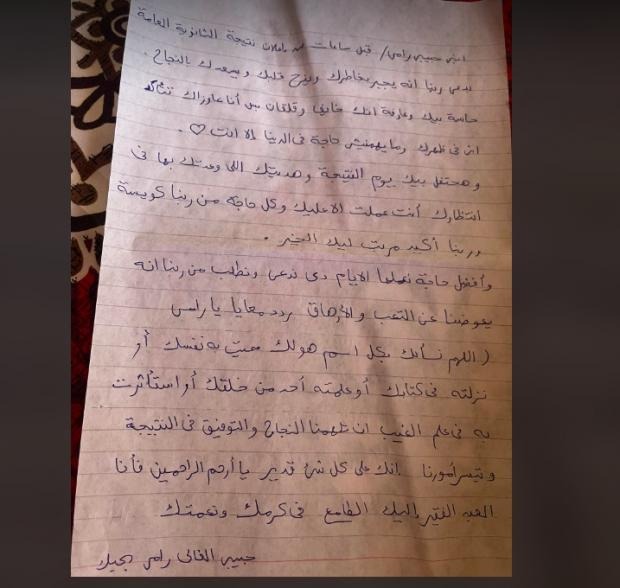 ابني حبيبي رامي/ قبل ساعات من إعلان نتيجة الثانوية العامة
بدعي ربنا انه يجبر بخاطرك ويفرح قلبك ويسعدك بالنجاح.
حاسة بيك وعارفة انك خايف وقلقان بس أنا عاوزاك تتأكد
اني في ظهرك وما يهمنيش حاجة في الدنيا إلا انت ♡.
وهحتفل بيك يوم النتيجة وهديتك اللي وعدتك بها في
انتظارك أنت عملت الا عليك وكل حاجة من ربنا كويسة
وربنا أكيد مرتب ليك الخير.
وأفضل حاجة نعملها الايام دي ندعي ونطلب من ربنا انه
يعوضنا عن التعب والأرهاق ردد معايا يا رامي
(اللهم نسألك بكل اسم هو لك سميت به نفسك أو
نزلته في كتابك أو علمته أحد من خلقك أو استأثرت
به في علم الغيب ان تلهمنا النجاح والتوفيق في النتيجة
وتيسر أمورنا انك على كل شئ قدير يا أرحم الراحمين فأنا
العبد الفقير إليك الطامع في كرمك ونعمتك
حبيبي الغالي رامي بحبك